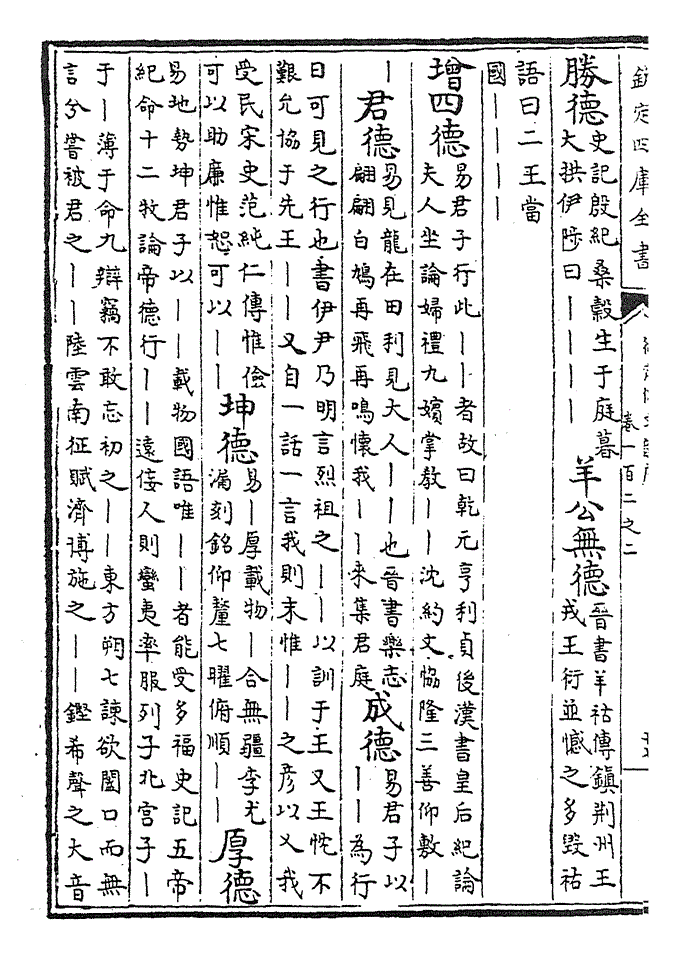 欽定四庫全書
卷一百二之二
勝德
史記殷紀桑穀生于庭暮
大拱伊陟曰丨丨丨丨
羊公無德
晉書羊祜傳鎮荆州王
戎王衍並憾之多毀祜
語曰二王當
國丨丨丨丨
增四德
易君子行此丨丨者故曰乾元亨利貞後漢書皇后紀論
夫人坐論婦禮九嬪掌教丨丨沈約文協隆三善仰敷丨
丨
君德
易見龍在田利見大人丨丨也晉書樂志
翩翩白鳩再飛再鳴懷我丨丨來集君庭
成德
易君子以
丨丨為行
日可見之行也書伊尹乃明言烈祖之丨丨以訓于王又王忱不
艱允協于先王丨丨又自一話一言我則末惟丨丨之彦以乂我
受民宋史范純仁傳惟儉
可以助廉惟恕可以丨丨
坤德
易丨厚載物丨合無疆李尤
漏刻銘仰釐七曜俯順丨丨
厚德
易地勢坤君子以丨丨載物國語唯丨丨者能受多福史記五帝
紀命十二牧論帝德行丨丨遠佞人則蠻夷率服列子北宫子丨
于丨薄于命九辯竊不敢忘初之丨丨東方朔七諫欲闔口而無
言兮嘗被君之丨丨陸雲南征賦濟博施之丨丨鏗希聲之大音